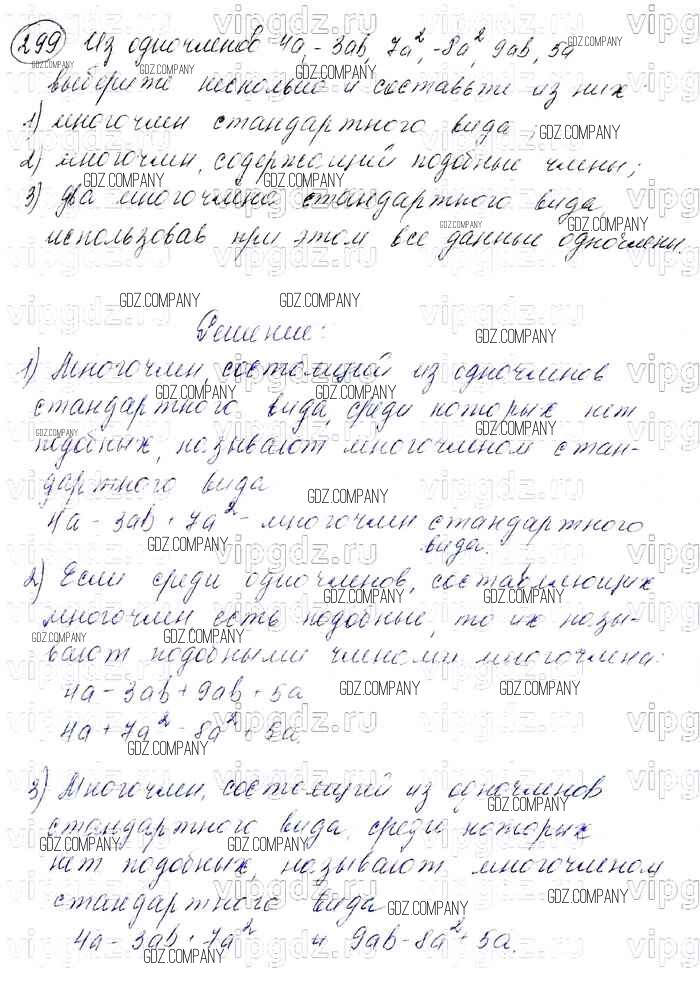 299 Из одночленов 4a, -3ab, 7a², -8a², 9ab, 5a
выберите несколько и составьте из них
1) многочлен стандартного вида;
2) многочлен, содержащий подобные члены;
3) два многочлена стандартного вида,
использовав при этом все данные одночлены.
Решение:
1) Многочлен, состоящий из одночленов
стандартного вида, среди которых нет
подобных, называют многочленом стан-
дартного вида
4a - 3ab + 7a² - многочлен стандартного
вида.
2) Если среди одночленов, составляющих
многочлен есть подобные, то их назы-
вают подобными членами многочлена:
4a - 3ab + 9ab + 5a
4a + 7a² - 8a² + 5a.
3) Многочлен, состоящий из одночленов
стандартного вида, среди которых
нет подобных, называют многочленом
стандартного вида
4a - 3ab + 7a² и 9ab - 8a² + 5a.